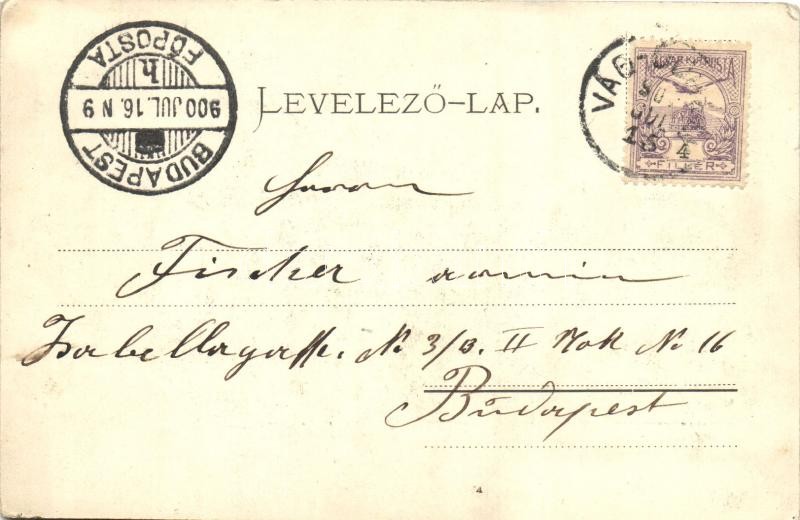 BUDAPEST
900 JUL. 16. N 9
h
FŐPOSTA
LEVELEZŐ-LAP.
VÁG-
MAGYAR KIR. POSTA
4
FILLÉR
Herrn
Fischer Armin
Isabellagasse. No 3/B. II Stok No 16
Budapest
4